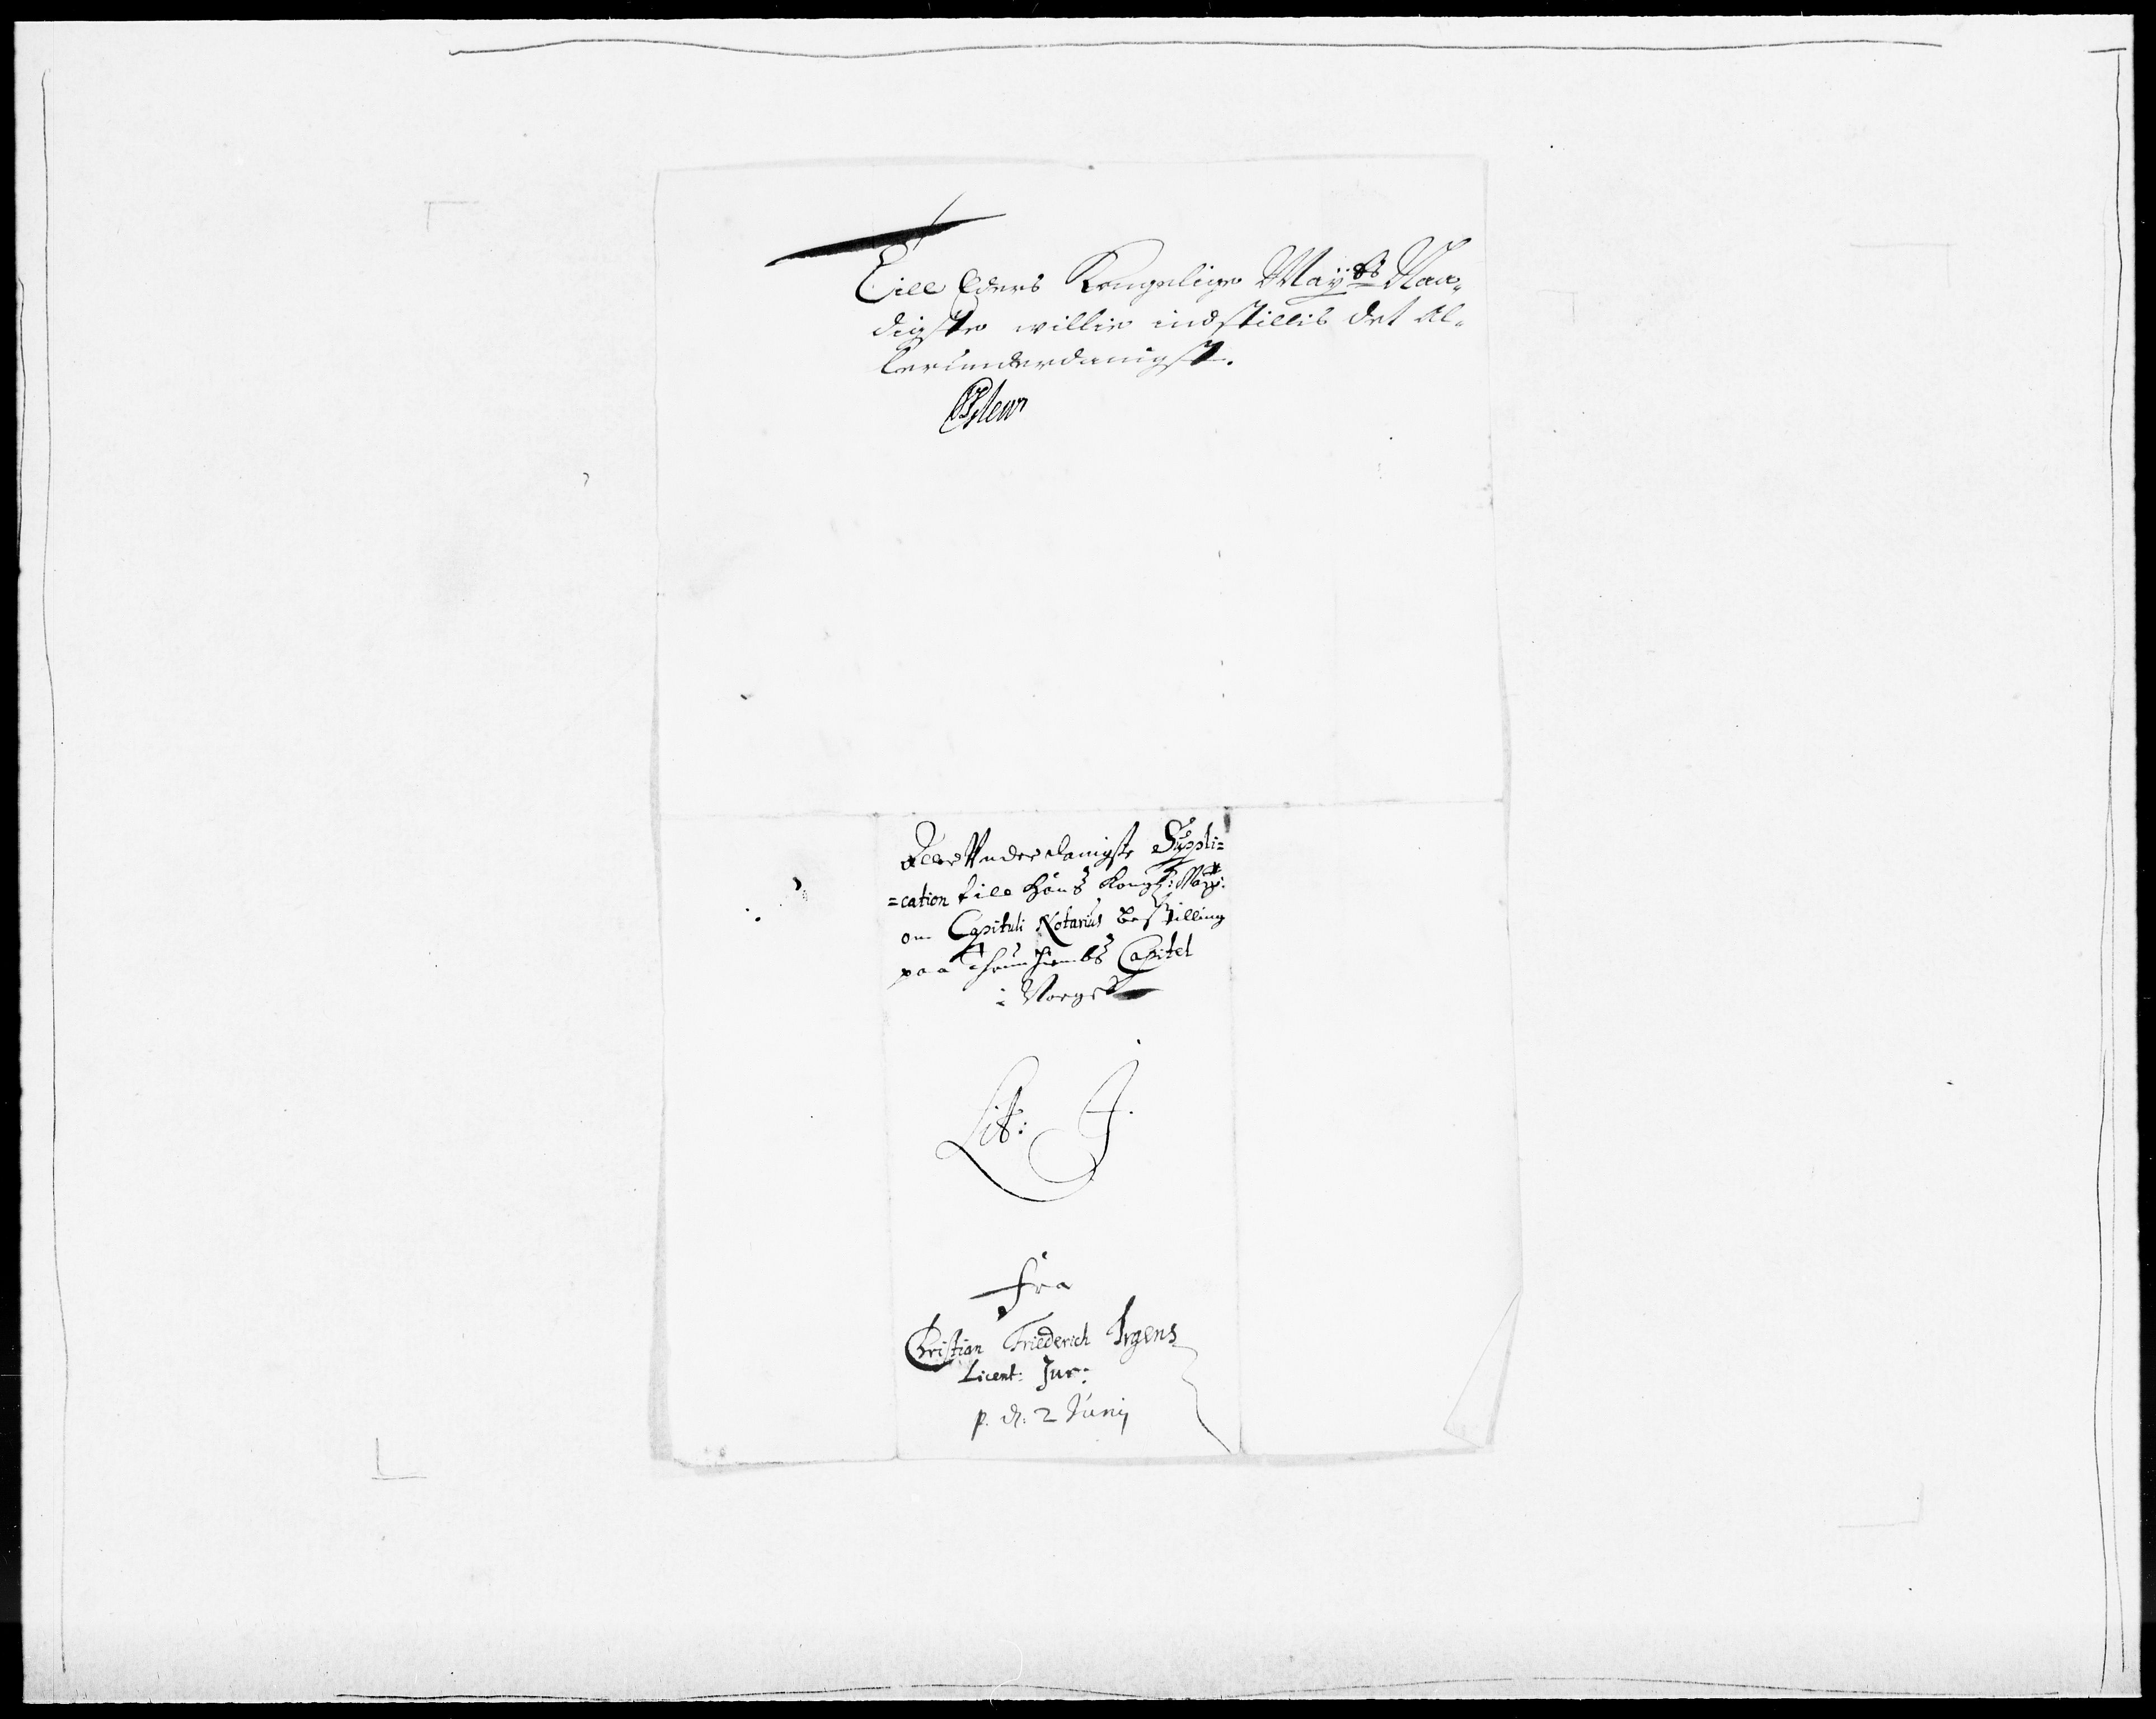 Till Eders Kongelige May:ts Naa-
digste willie indstillis det al-
lerunderdanigst.
Aller Underdanigste Suppli=
=cation till Hans Kongl: May:tt
om Capituli Notarius Bestilling
paa Trundhiembs Capitel
i Norge
Lit: J.
fra
Christian Friederich Irgens
Licent: Jur:
p. d: 2 Junij